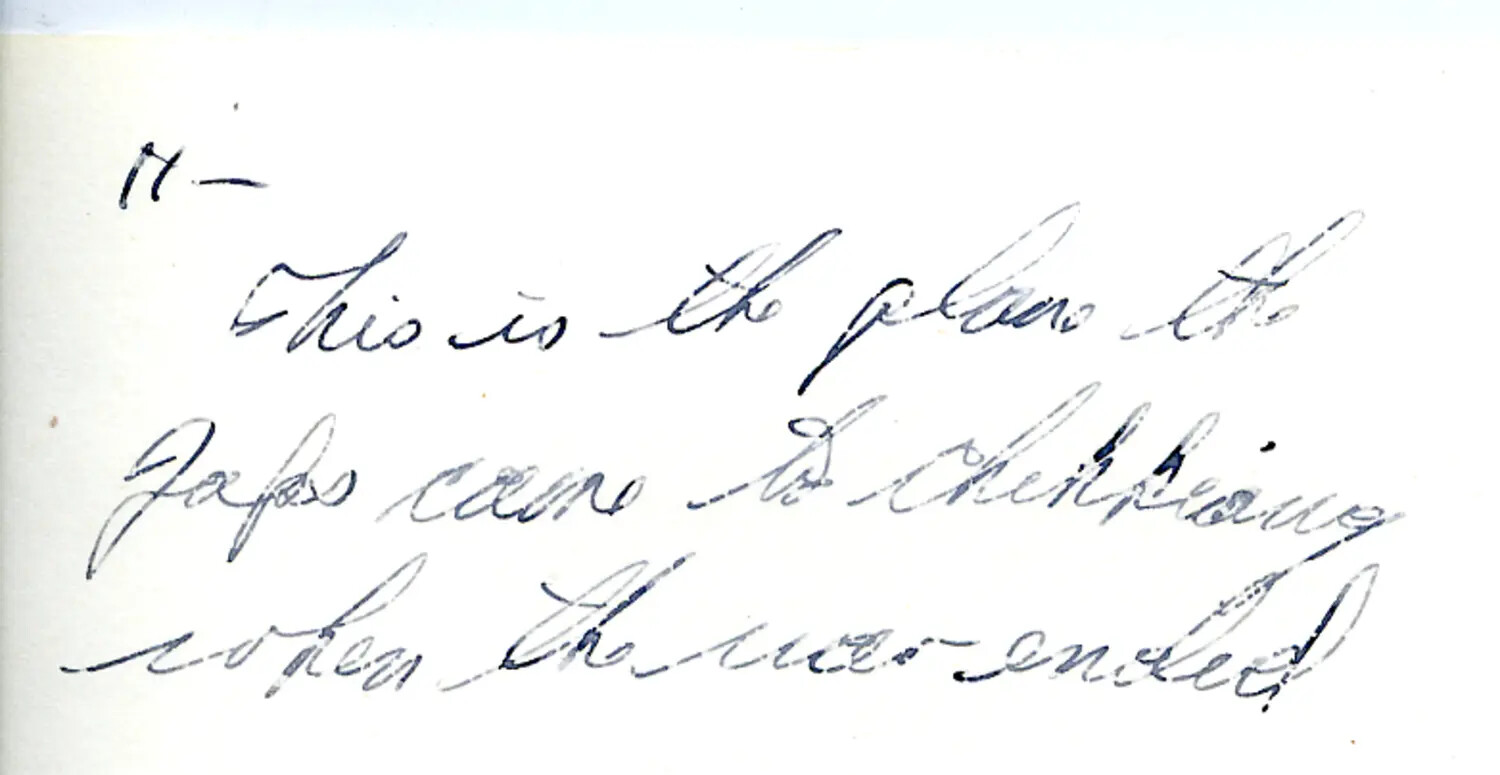 11 —
This is the plane the
Japs came to Chihkiang
when the war ended